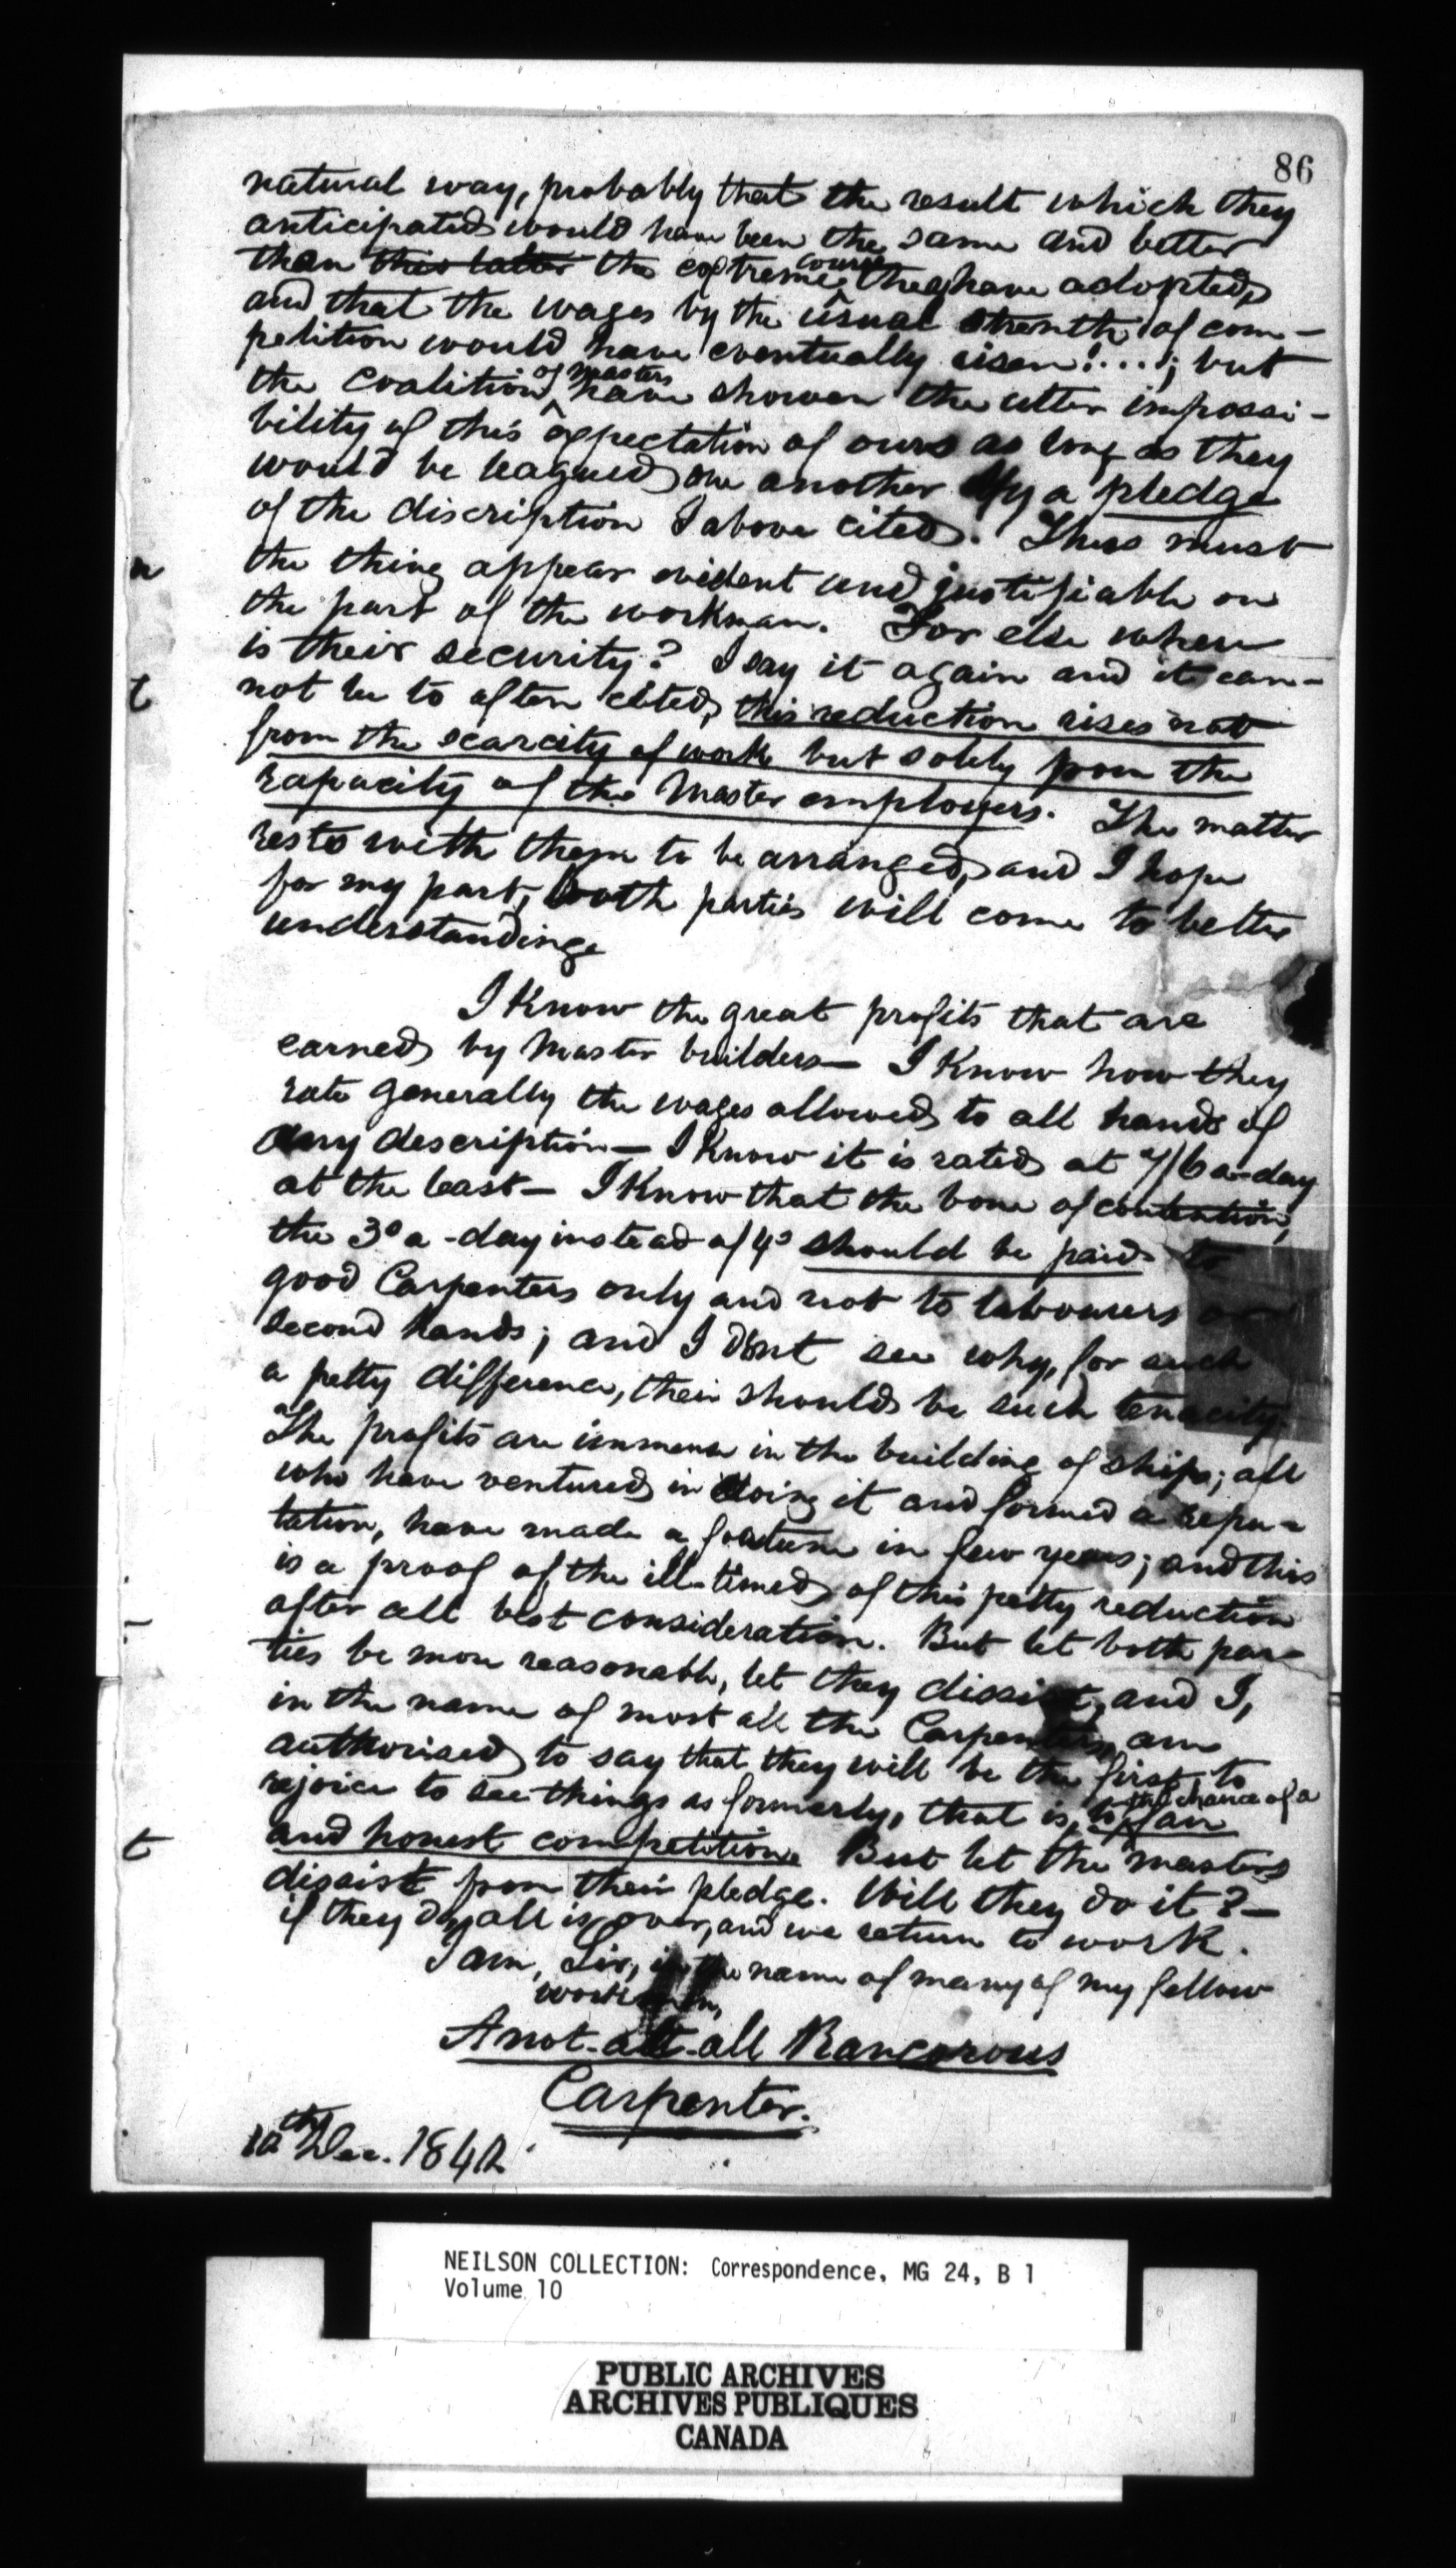 86
natural way, probably that the result which they
anticipated would have been the same and better
than this latter the extreme course they have adopted,
and that the wages by the usual strenth of com-
petition would have eventually risen!....; but
the coalition of masters have shown the utter impossi-
bility of this expectation of ours as long as they
would be leagued one another by a pledge
of the discription I above cited. Thus must
the thing appear evident and justifiable on
the part of the workman. For else where
is their security? I say it again and it can-
not be to often cited, this reduction rises not
from the scarcity of work but solely from the
rapacity of the Master employers. The matter
rests with them to be arranged, and I hope
for my part, both parties will come to better
understanding
I Know the great profits that are
earned by Master builders— I Know how they
rate generally the wages allowed to all hands of
any description— I Know it is rated at 7/6 a-day
at the least— I Know that the bone of contention,
the 3s a-day instead of 4s should be paid to
good Carpenters only and not to labourers or
second hands; and I dont see why, for such
a petty difference, their should be such tenacity.
The profits are immense in the building of ships; all
who have ventured in doing it and formed a repu-
tation, have made a fortune in few years; and this
is a proof of the ill-timed of this petty reduction
after all best consideration. But let both par-
ties be more reasonable, let they dissist, and I,
in the name of most all the Carpenters, am
authorised to say that they will be the first to
rejoice to see things as formerly, that is, to the chance of a fair
and honest competition. But let the masters
dissist from their pledge. Will they do it?—
if they do, all is over, and we return to work.
I am, Sir, in the name of many of my fellow
workmen,
A not-att-all Rancorous
Carpenter.
10th Dec. 1840.
n
t
t
NEILSON COLLECTION: Correspondence, MG 24, B 1
Volume 10
PUBLIC ARCHIVES
ARCHIVES PUBLIQUES
CANADA